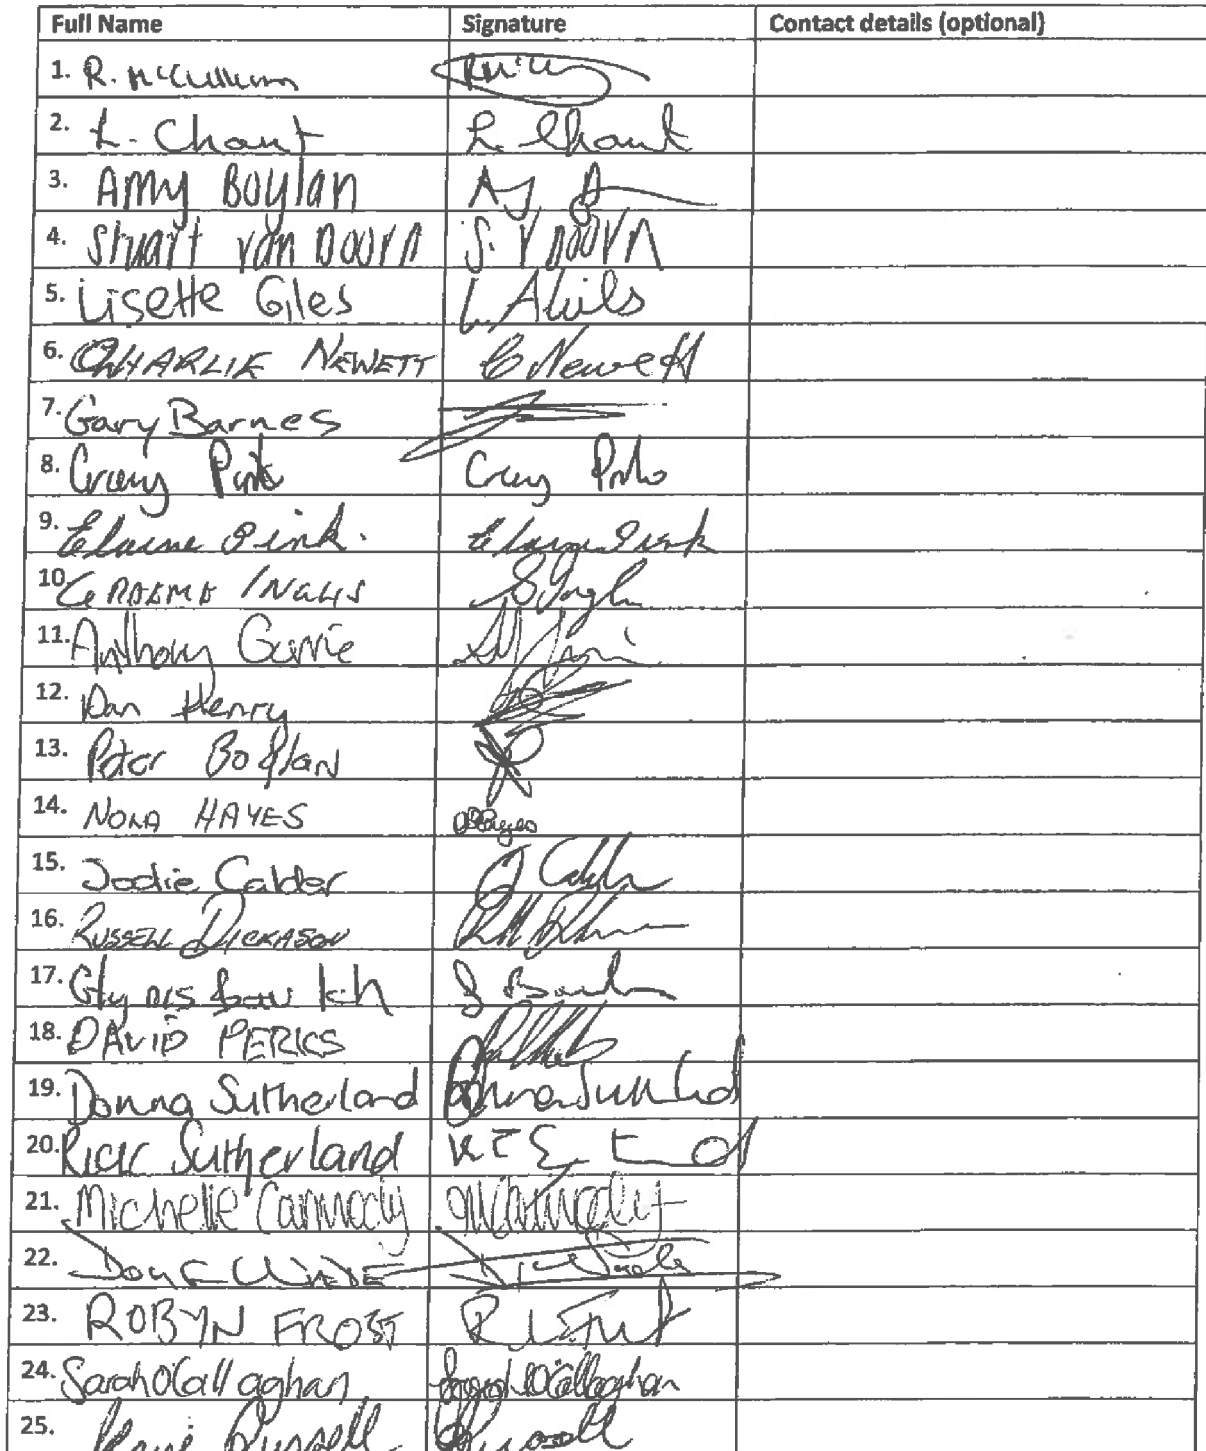 Full Name Signature Contact details (optional)
1. R. McCullum
2. L. Chant L. Chant
3. Amy Boylan
4. Stuart van Doorn S. V Doorn
5. Lisette Giles
6. CHARLIE NEWETT C Newett
7. Gary Barnes
8. Craig Pink Craig
9. Elaine Pink. Elaine Pink
10. GRAEME INGLIS
11. Anthony Currie
12. Dan Henry
13. Peter Boylan
14. NORA HAYES
15. Jodie Calder
16. RUSSELL DICKASON
17. Glynis
18. DAVID PERKS
19. Donna Sutherland Donna
20. Rick Sutherland
21. Michelle Carmody MCarmody
22. Doug WADE
23. ROBYN FROST
24. Sarah O'Callaghan Sarah O'Callaghan
25. Russell Russell